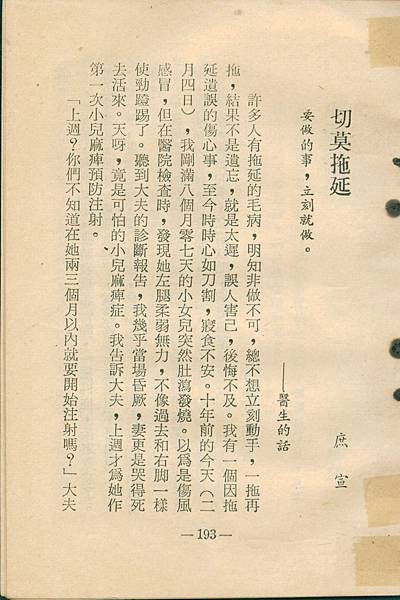 切莫拖延
庶宣
要做的事，立刻就做。
——醫生的話
許多人有拖延的毛病，明知非做不可，總不想立刻動手，一拖再
拖，結果不是遺忘，就是太遲，誤人害己，後悔不及。我有一個因拖
延遺誤的傷心事，至今時時心如刀割，寢食不安。十年前的今天（二
月四日），我剛滿八個月零七天的小女兒突然肚瀉發燒。以爲是傷風
感冒，但在醫院檢查時，發現她左腿柔弱無力，不像過去和右脚一樣
使勁蹬踢了。聽到大夫的診斷報告，我幾乎當場昏厥，妻更是哭得死
去活來。天呀，竟是可怕的小兒麻痺症。我告訴大夫，上週才爲她作
第一次小兒麻痺預防注射。
「上週？你們不知道在她兩三個月以內就要開始注射嗎？」大夫
—193—